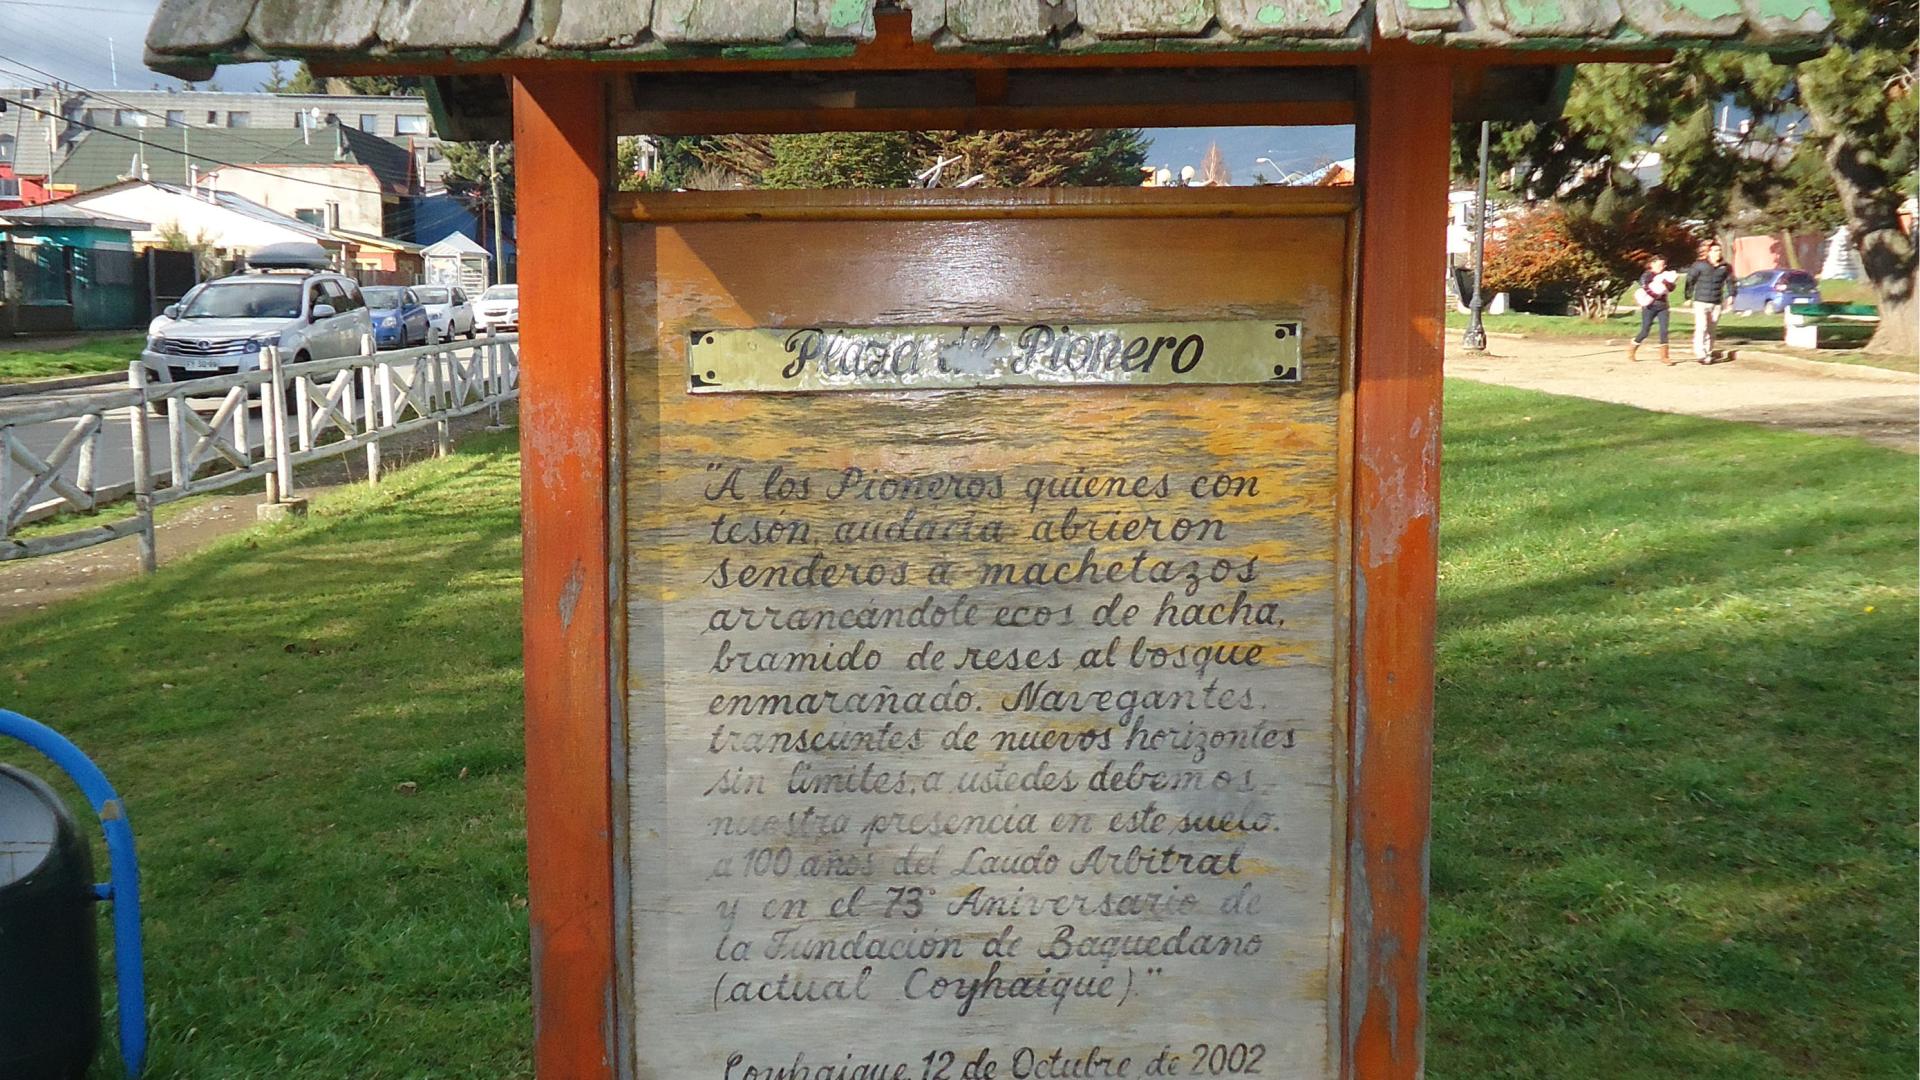 Plaza del Pionero
"A los Pioneros quienes con
tesón, audacia abrieron
senderos a machetazos
arrancándole ecos de hacha,
bramido de reses al bosque
enmarañado. Navegantes,
transeúntes de nuevos horizontes
sin limites, a ustedes debemos
nuestra presencia en este suelo.
a 100 años del Laudo Arbitral
y en el 73° Aniversario de
la Fundación de Baquedano
(actual Coyhaique)."
Coyhaique, 12 de Octubre, de 2002